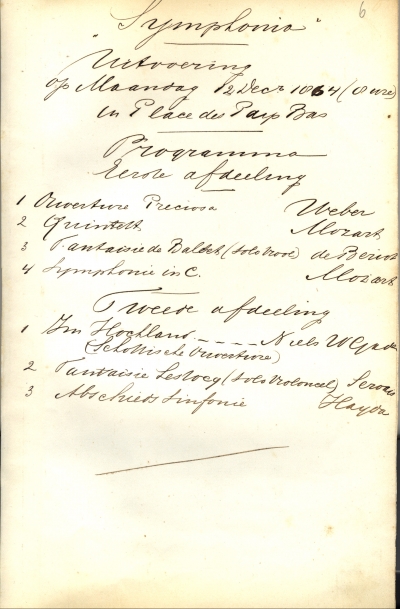 6
„Symphonia"
Uitvoering
op Maandag 12 Decr 1864 (8 ure)
in Place des Pays Bas
Programma
Eerste afdeeling
1 Ouverture Preciosa Weber
2 Quintett Mozart
3 Fantaisie de Ballet (Solo viool) de Beriot
4 Symphonie in C. Mozart
Tweede afdeeling
1 Im Hochland - - - - Niels W Gade
(Schottische Ouverture)
2 Fantaisie Lestocq (Solo Violoncel) Servais
3 Abschieds Sinfonie Haydn